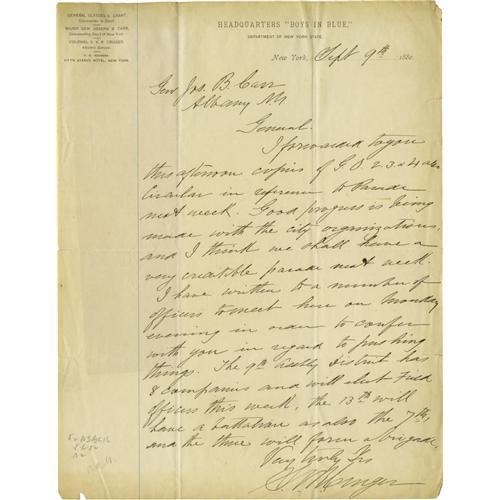 GENERAL ULYSSES S. GRANT,
Commander in Chief.
MAJOR GEN. JOSEPH B. CARR,
Commanding Dep't of New York
COLONEL S. V. R. CRUGER,
FIFTH AVENUE HOTEL, NEW YORK.
HEADQUARTERS "BOYS IN BLUE,"
DEPARTMENT OF NEW YORK STATE.
New York, Sept 9th 1880
Gen Jos. B. Carr
Albany NY
General.
I forwarded to you
this afternoon copies of G.O. 2. 3. & 4 also
Circular in reference to Parade
next week. Good progress is being
made with the city organizations,
and I think we shall have a
very creditable parade next week.
I have written to a number of
officers to meet here on Monday
evening in order to confer
with you in regard to pushing
things. The 9th Assbly District has
8 companies and will elect Field
officers this week, the 13th will
have a battalion as also the 7th,
and the three will form a brigade
Very truly Yrs
S.V.R. Cruger